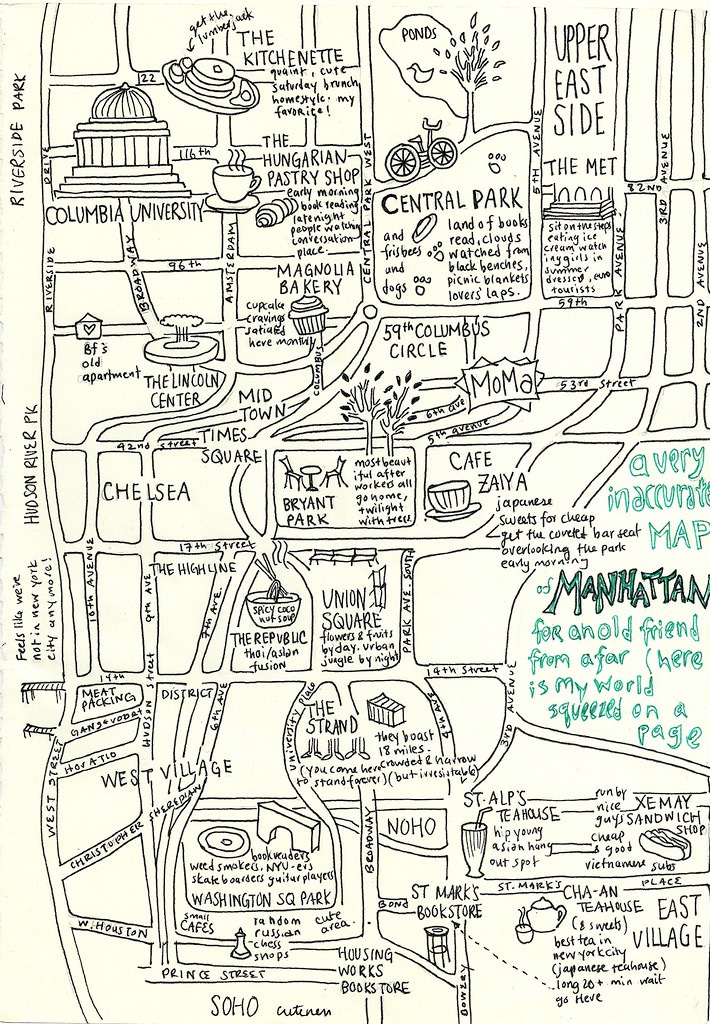 get the
lumberjack
THE
KITCHENETTE
quaint, cute
saturday brunch
homestyle. my
favorite!
PONDS
UPPER
EAST
SIDE
RIVERSIDE PARK
122
116th
RIVERSIDE
DRIVE
THE
HUNGARIAN
PASTRY SHOP
early morning
book reading
late night
people watching
conversation
place.
COLUMBIA UNIVERSITY
CENTRAL PARK WEST
CENTRAL PARK
and
frisbees
and
dogs
land of books
read, clouds
watched from
black benches,
picnic blankets
lovers' laps.
5TH AVENUE
THE MET
82ND
3RD AVENUE
sit on the steps
eating ice
cream watch
ing girls in
summer
dresses, euro
tourists
PARK AVENUE
2ND AVENUE
BROADWAY
AMSTERDAM
96th
MAGNOLIA
BAKERY
cupcake
cravings
satiated
here monthly
COLUMBUS
59th
59th COLUMBUS
CIRCLE
Bf's
old
apartment
THE LINCOLN
CENTER
MID
TOWN
MoMa
53rd Street
6th ave
5th avenue
HUDSON RIVER PK
42nd street
TIMES
SQUARE
CHELSEA
BRYANT
PARK
most beaut
iful after
workers all
go home,
twilight
with trees
CAFE
ZAIYA
japanese
sweets for cheap
get the coveted bar seat
overlooking the park
early morning
a very
inaccurate
MAP
of MANHATTAN
for an old friend
from afar (here
is my world
squeezed on a
page
Feels like we're
not in new york
city anymore!
10th AVENUE
9th AVE
17th Street
THE HIGHLINE
7th AVE.
SPICY COCO
NUT SOUP
THE REPUBLIC
thai/asian
fusion
UNION
SQUARE
flowers & fruits
by day. urban
jungle by night
PARK AVE SOUTH
14th
14th Street
MEAT
PACKING
DISTRICT
GANSEVOORT
HORATIO
HUDSON Street
6th AVE
WEST STREET
WEST VILLAGE
CHRISTOPHER
SHERIDIAN
university place
THE
STRAND
they boast
18 miles.
crowded & narrow
(you come here
to stand forever)
(but irresistable)
4th AVE
3RD AVENUE
BROADWAY
NOHO
ST. ALP'S
TEAHOUSE
hip young
asian hang
out spot
run by
nice
guys
cheap
& good
vietnamese subs
XE MAY
SANDWICH
SHOP
book readers
weed smokers, NYU-ers
skateboarders guitar players
WASHINGTON SQ PARK
ST. MARK'S PLACE
BOND
ST MARK'S
BOOKSTORE
CHA-AN
TEAHOUSE
(& sweets)
best tea in
new york city
(japanese teahouse)
long 20+ min wait
go there
EAST
VILLAGE
W. HOUSTON
small
CAFES
random
russian
chess
shops
cute
area.
PRINCE STREET
HOUSING
WORKS
BOOKSTORE
BOWERY
SOHO